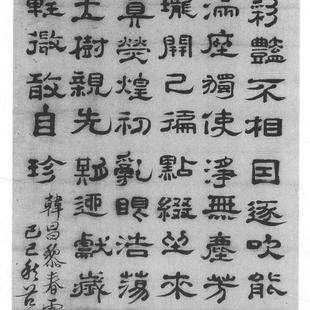 彩豔不相因逐吹能
滿座獨使淨無塵芳
瓏開已徧點綴坐來
真熒煌初亂眼浩蕩
玉樹親先期迎獻歲
輕微敢自珍
韓昌黎春雪
己巳秋